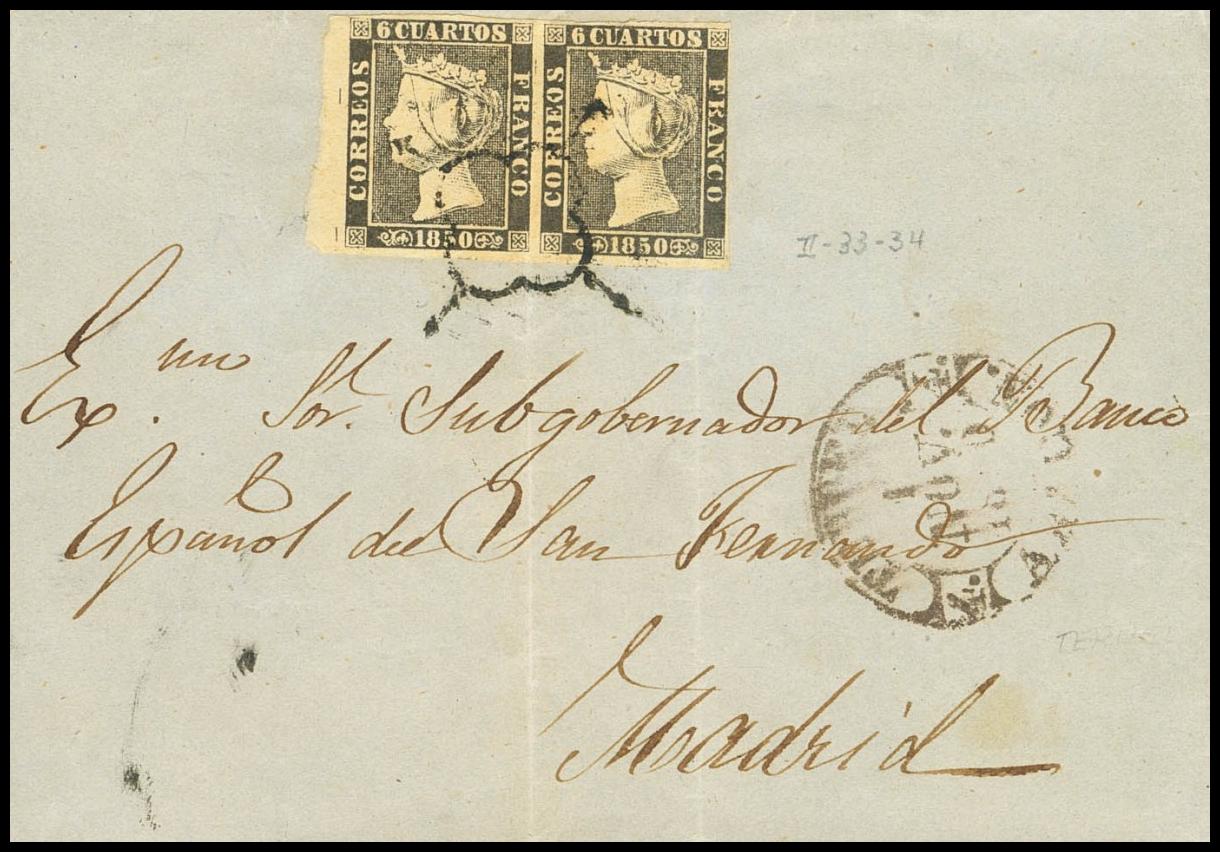 6 CUARTOS
CORREOS
FRANCO
1850
6 CUARTOS
CORREOS
FRANCO
1850
II-33-34
Ex.mo Sor. Subgobernador del Banco
Español de San Fernando
Madrid
TERUEL